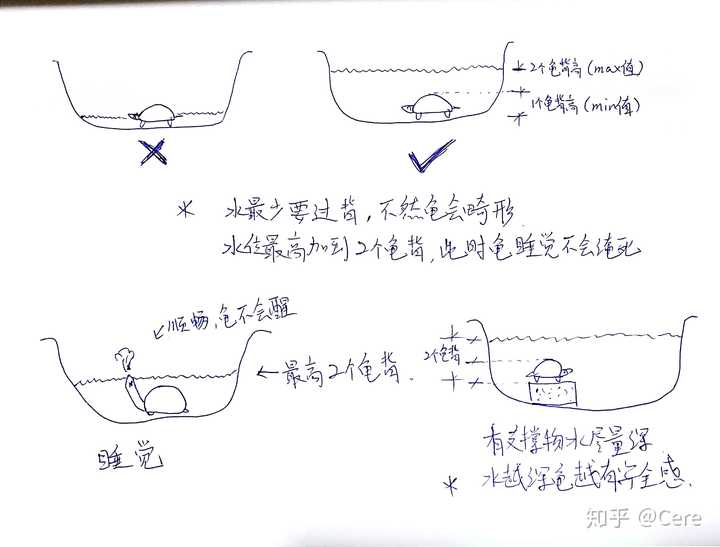 2个龟背高(max值)
1个龟背高(min值)
* 水最少要过背,不然龟会畸形
水位最高加到2个龟背,此时龟睡觉不会淹死
顺畅,龟不会醒
最高2个龟背.
2个龟背
睡觉
有支撑物水尽量深
* 水越深龟越有安全感.
知乎 @Cere